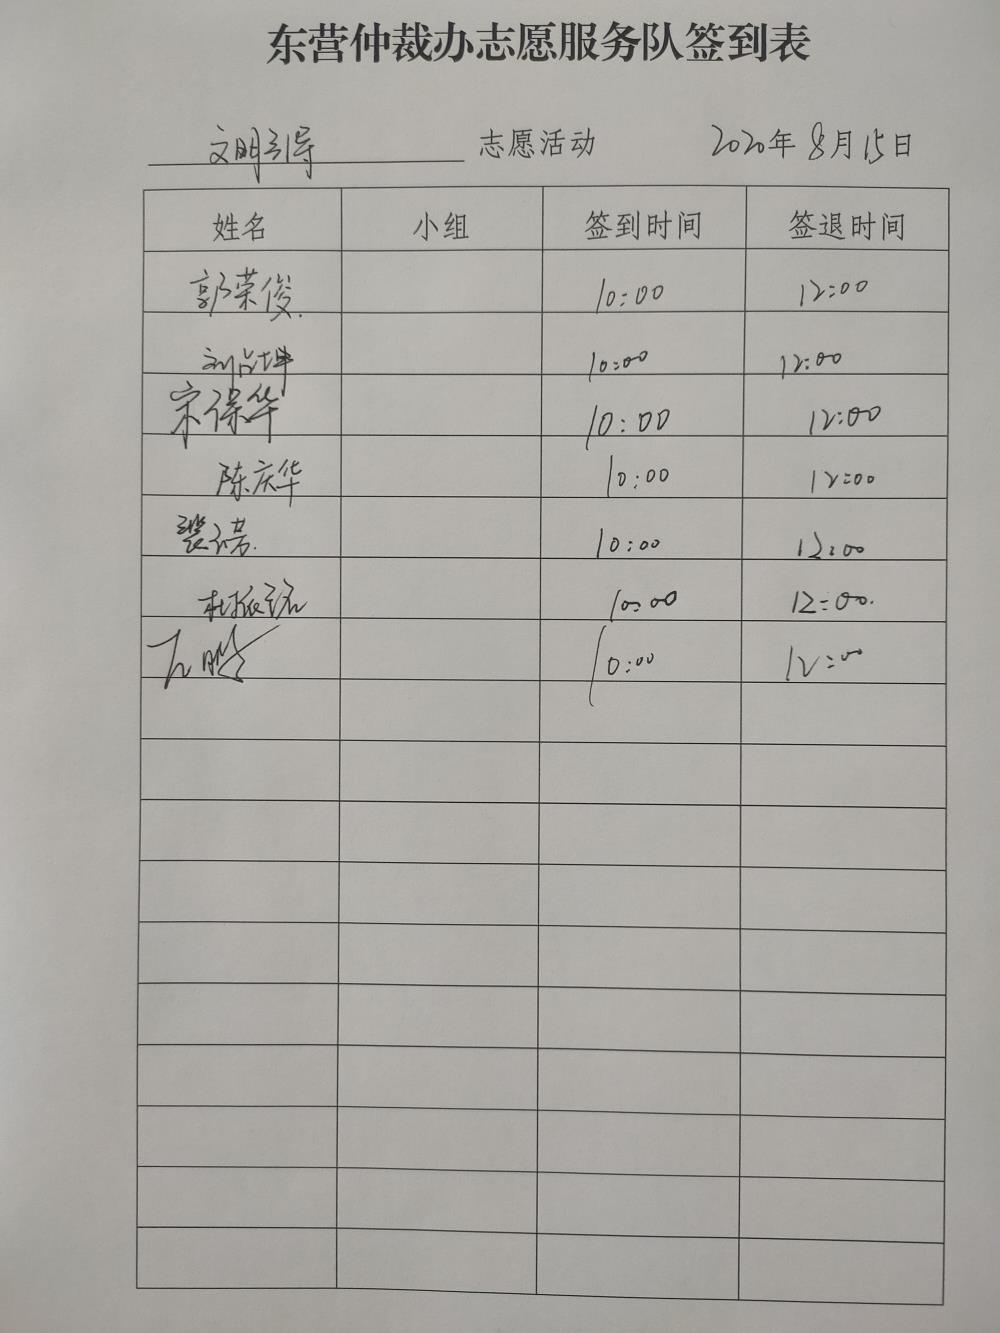 东营仲裁办志愿服务队签到表
文明引导 志愿活动 2020年8月15日
姓名 小组 签到时间 签退时间
郭荣俊 10:00 12:00
刘占坤 10:00 12:00
宋保华 10:00 12:00
陈庆华 10:00 12:00
10:00 12:00
10:00 12:00
10:00 12:00